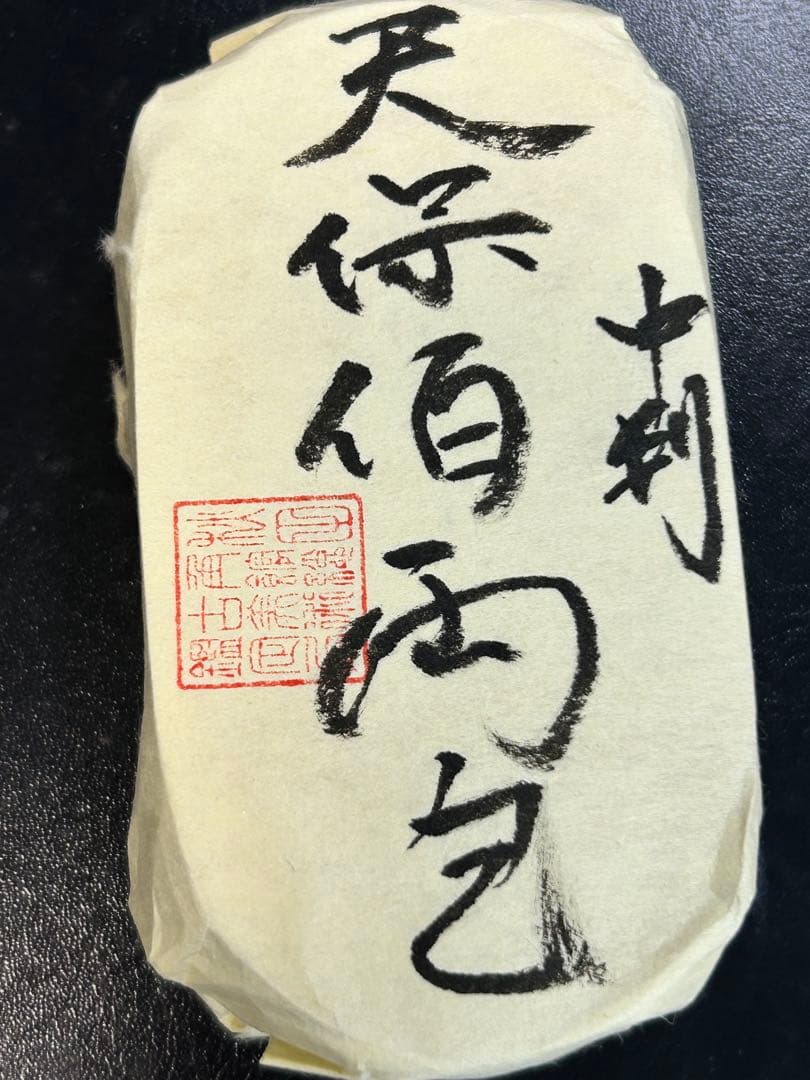 中判
天保佰両包